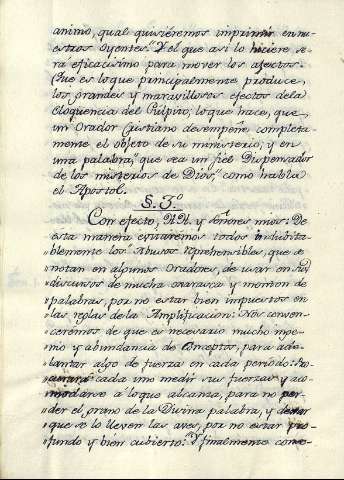 animo, qual quisiéremos imprimir en nu-
estros Oyentes. Y el que asi lo hiciere se-
rá eficacisimo para mover los afectos.
Que es lo que principalmente produce,
los grandes y maravillosos efectos de la
Eloquencia del Púlpito; lo que hace, que
un Orador Cristiano desempeñe completa-
mente el objeto de su ministerio; y en
una palabra, que sea un fiel Dispensador
de los misterios de Dios, como habla
el Apostol.
§. 3.º
Con efecto, RR. y Señores mios: De
esta manera evitaremos todos indubita-
blemente los Abusos reprehensibles, que se
notan en algunos Oradores, de usar en sus
discursos de mucha and monton de
palabras, por no estar bien impuestos en
las reglas de la Amplificacion: Nos conven-
ceremos de que es necesario mucho inge-
nio y abundancia de Conceptos, para ade-
lantar algo de fuerza en cada período:
cada uno medir sus fuerzas y aco-
modarse a lo que alcanza, para no per-
der el grano de la Divina palabra, y dexar
que se lo lleven las aves, por no estar pro-
fundo y bien cubierto: Y finalmente cono-